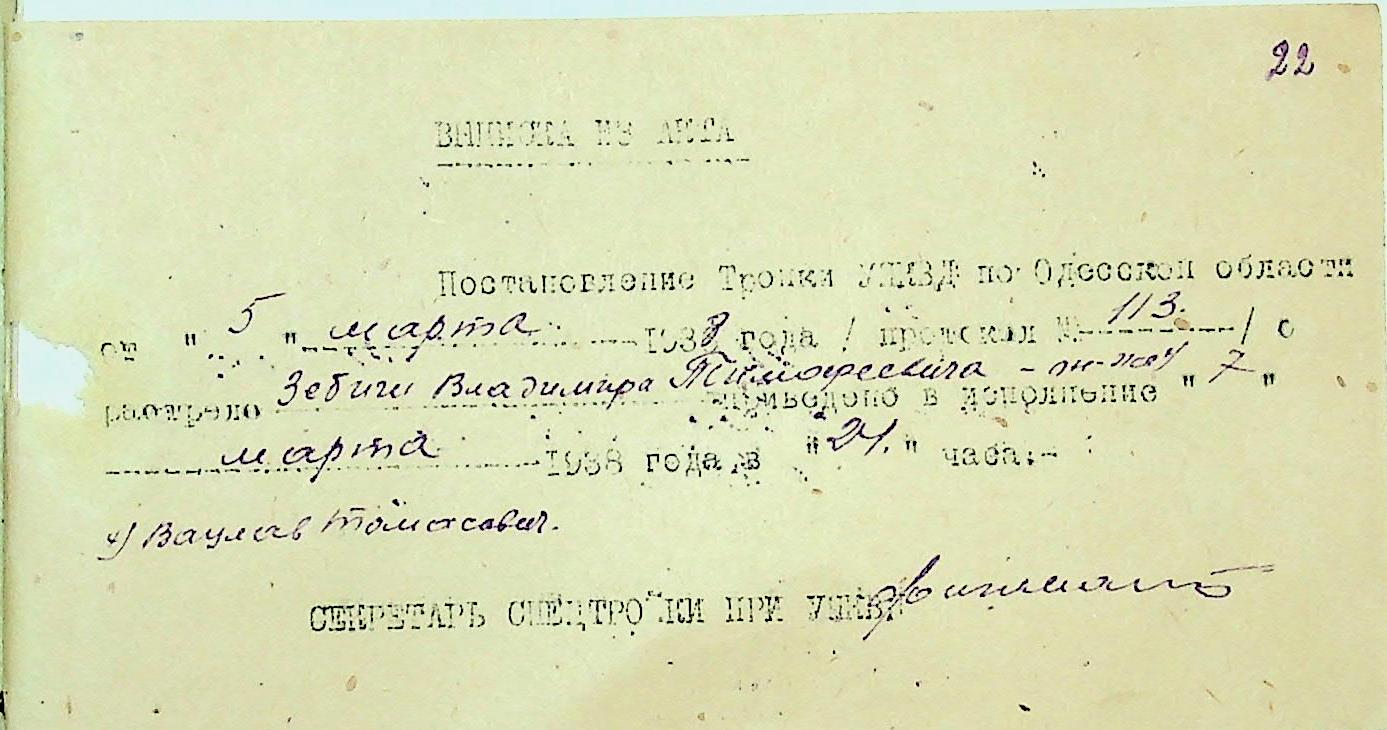 22
ВЫПИСКА ИЗ АКТА
Постановление Тройки УНКВД по Одесской области
от "5" марта 1938 года / протокол № 113. / о
расстреле Зебиги Владимира Тимофеевича приведено в исполнение "7"
марта 1938 года в "24." часа.-
Вацлав Томасович.
СЕКРЕТАРЬ СПЕЦТРОЙКИ ПРИ УНКВД